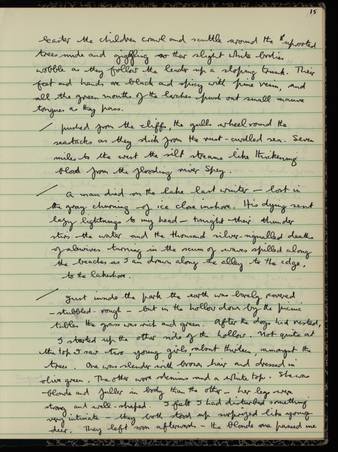 15
leader the children crowd and scuttle around the uprooted
trees nude and giggling so their slight white bodies
wobble as they follow the leader up a sloping trunk. Their
feet and hands are black and spicy with pine resin, and
all the green mouths of the larches push out small mauve
tongues as they pass.
/ pushed from the cliffs, the gulls wheel round the
seastacks as they stick from the rust-curdled sea. Seven
miles to the west the silt streams like thickening
blood from the flooding river Spey.
/ A man died on the lake last winter — lost in
the gray churning of ice close inshore. His dying sent
lazy lightnings to my head — taught their thunder
the water and the thousand silver-
of alewives turning in the scum of waves spilled along
the beaches as I am drawn along the alley to the edge,
to the lakeshore.
/ Just inside the park the earth was barely covered
- stubbled - rough - but in the hollow down by the picnic
tables the grass was rich and green. After the dogs had rested,
I started up the other side of the hollow. Not quite at
the top I saw two young girls, about thirteen, amongst the
trees. One was slender with brown hair and dressed in
olive green. The other wore denims and a white top. She was
blonde and fuller in body than the other - her legs were
strong and well-shaped. I felt I had disturbed something
very intimate - they both stood up surprised like young
deer. They left soon afterwards - the blonde one passed me